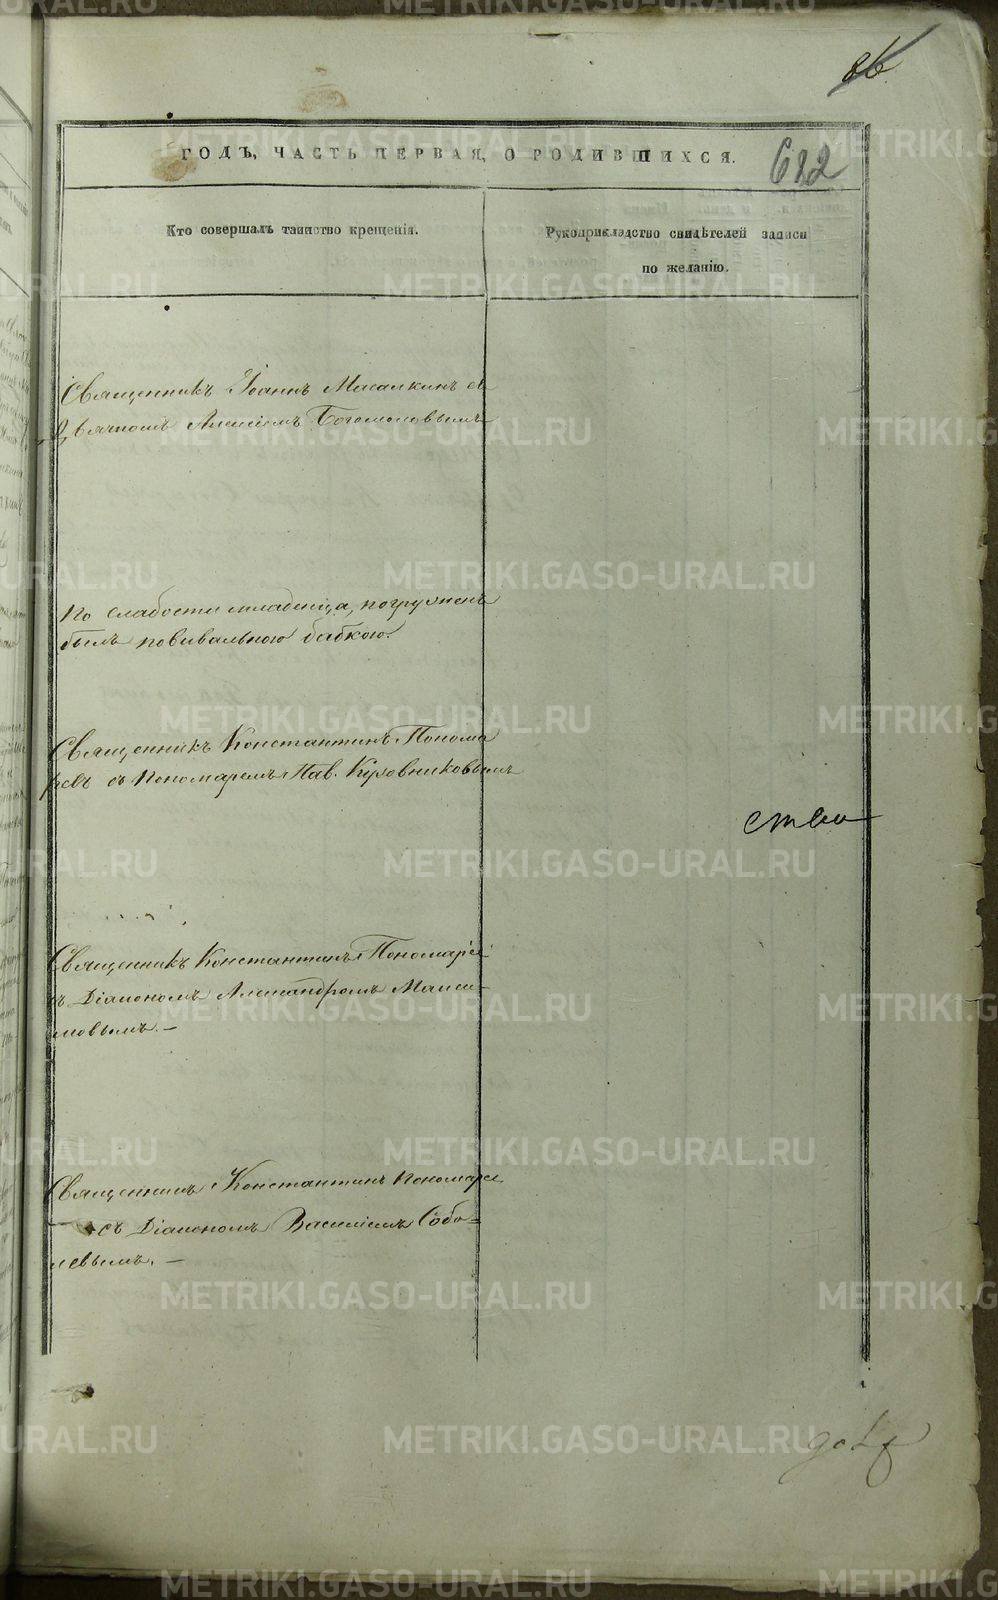 86
ГОДЪ, ЧАСТЬ ПЕРВАЯ, О РОДИВШИХСЯ.
622
Кто совершалъ таинство крещенія.
Рукоприкладство свидѣтелей записи
по желанію.
Священникъ Іоаннъ съ
Алексіемъ Богомоловымъ
По слабости младенца, погруженъ
былъ повивальною бабкою.
Священникъ Константинъ Понома
ревъ съ Пономаремъ Пав. Куровниковымъ
ство
Священникъ Константинъ Пономарев
съ Діакономъ Александромъ Макси-
мовымъ. —
Священникъ Константинъ Пономарев
съ Діакономъ Василіемъ Собо=
левымъ. —
METRIKI.GASO-URAL.RU